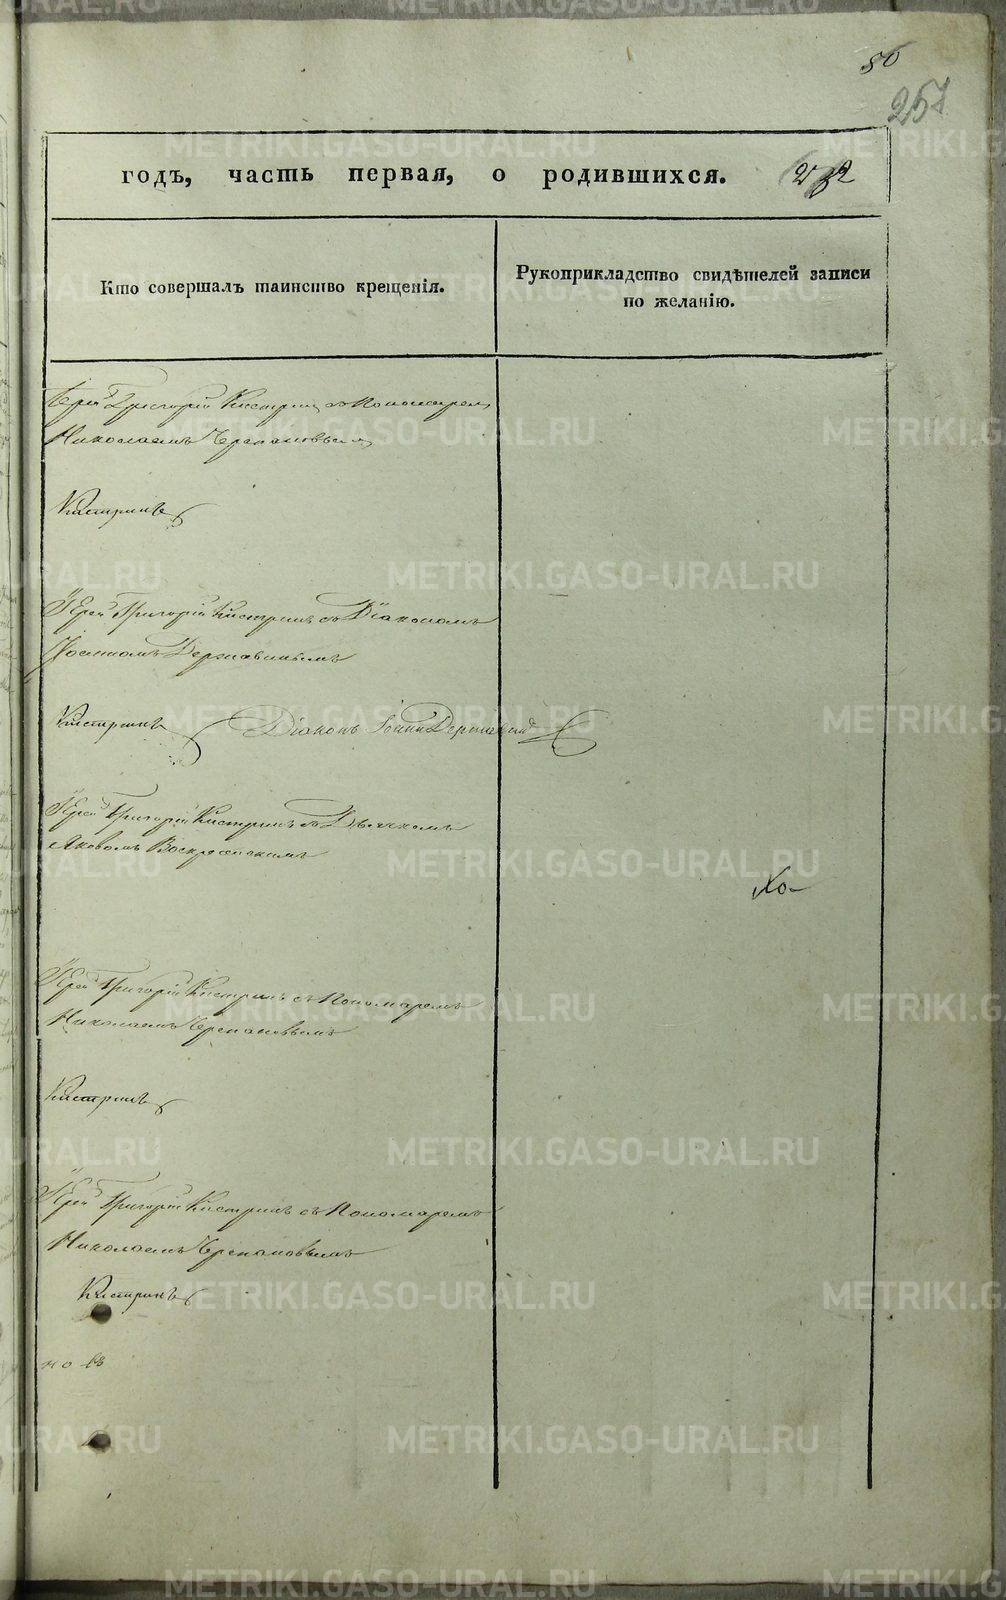 80
257
годъ, часть первая, о родившихся.
Кто совершалъ таинство крещенія.
Рукоприкладство свидѣтелей записи
по желанію.
Іерей Григорій Кистринъ съ Пономаремъ
Николаемъ Черепановымъ
Кистринъ
Іерей Григорій Кистринъ съ Діакономъ
Іоанномъ Державинымъ
Кистринъ Діаконъ Іоаннъ Державинъ
Іерей Григорій Кистринъ съ Дьячкомъ
Яковомъ Воскресенскимъ
Хо-
Іерей Григорій Кистринъ съ Пономаремъ
Николаемъ Черепановымъ
Кистринъ
Іерей Григорій Кистринъ съ Пономаремъ
Николаемъ Черепановымъ
Кистринъ
METRIKI.GASO-URAL.RU